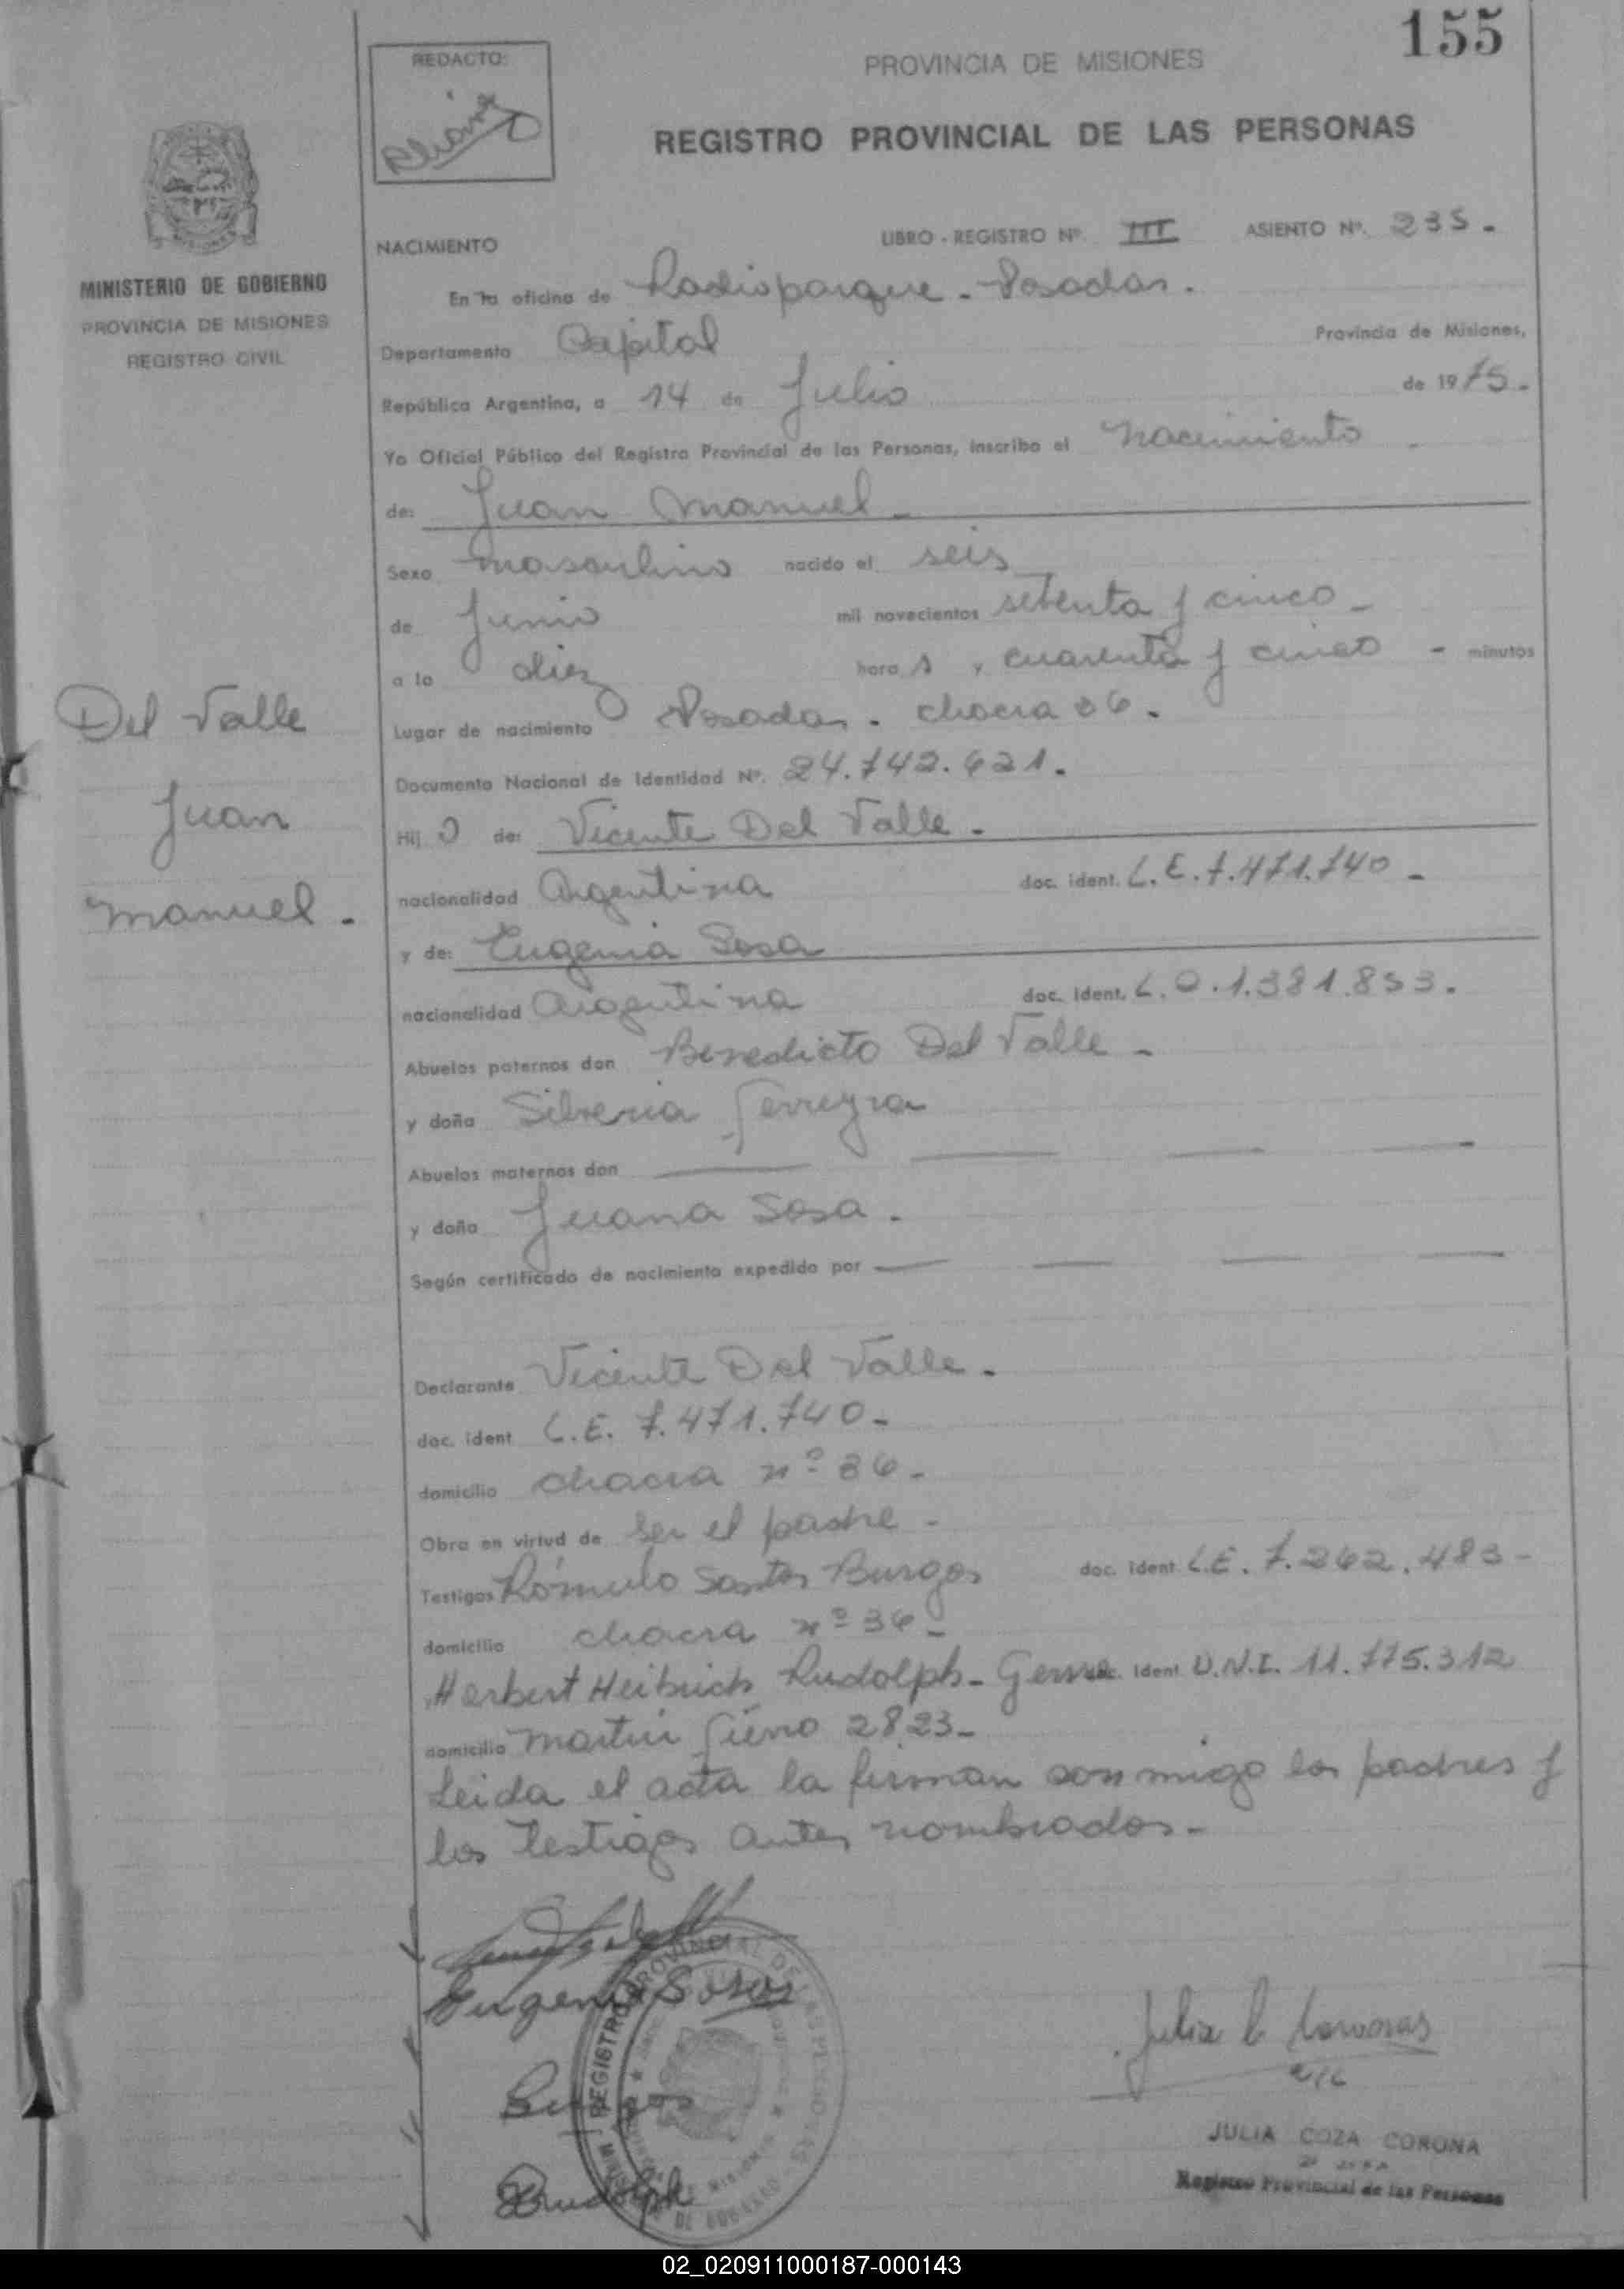 155
REDACTO:
PROVINCIA DE MISIONES
REGISTRO PROVINCIAL DE LAS PERSONAS
MINISTERIO DE GOBIERNO
PROVINCIA DE MISIONES
REGISTRO CIVIL
NACIMIENTO LIBRO - REGISTRO Nº. III ASIENTO Nº. 235.-
En la oficina de Radioparque - Posadas.
Departamento Capital Provincia de Misiones,
República Argentina, a 14 de Julio de 1975.-
Yo Oficial Público del Registro Provincial de las Personas, inscribo el nacimiento
de: Juan Manuel -
Sexo masculino nacido el seis
de Junio mil novecientos setenta y cinco -
a la diez hora s , cuarenta y cinco - minutos
Lugar de nacimiento Posadas. chacra 36.
Documento Nacional de Identidad Nº. 24.742.621.
Del Valle
Juan
Manuel.-
Hij o de: Vicente Del Valle.-
nacionalidad Argentina doc. ident. L.E. 7.471.740 -
y de: Eugenia Sosa
nacionalidad argentina doc. ident. L.C. 1.381.853.
Abuelos paternos don Benedicto Del Valle -
y doña Silveria Ferreyra
Abuelos maternos don
y doña Juana Sosa.
Según certificado de nacimiento expedido por
Declarante Vicente Del Valle.-
doc. ident L.E. 7.471.740-
domicilio chacra nº 36.-
Obra en virtud de ser el padre -
Testigos Rómulo Santos Burgos doc. ident L.E. 7.262.483-
domicilio chacra nº 36 -
Herbert Heibrich Rudolph - doc. ident D.N.I. 11.775.312
domicilio Martín Fierro 2823-
Leida el acta la firman conmigo los padres y
los testigos antes nombrados.-
Eugenia Sosa
Burgos
Rudolph
REGISTRO PROVINCIAL DE LAS PERSONAS
JULIA COZA CORONA
Registro Provincial de las Personas
02_020911000187-000143